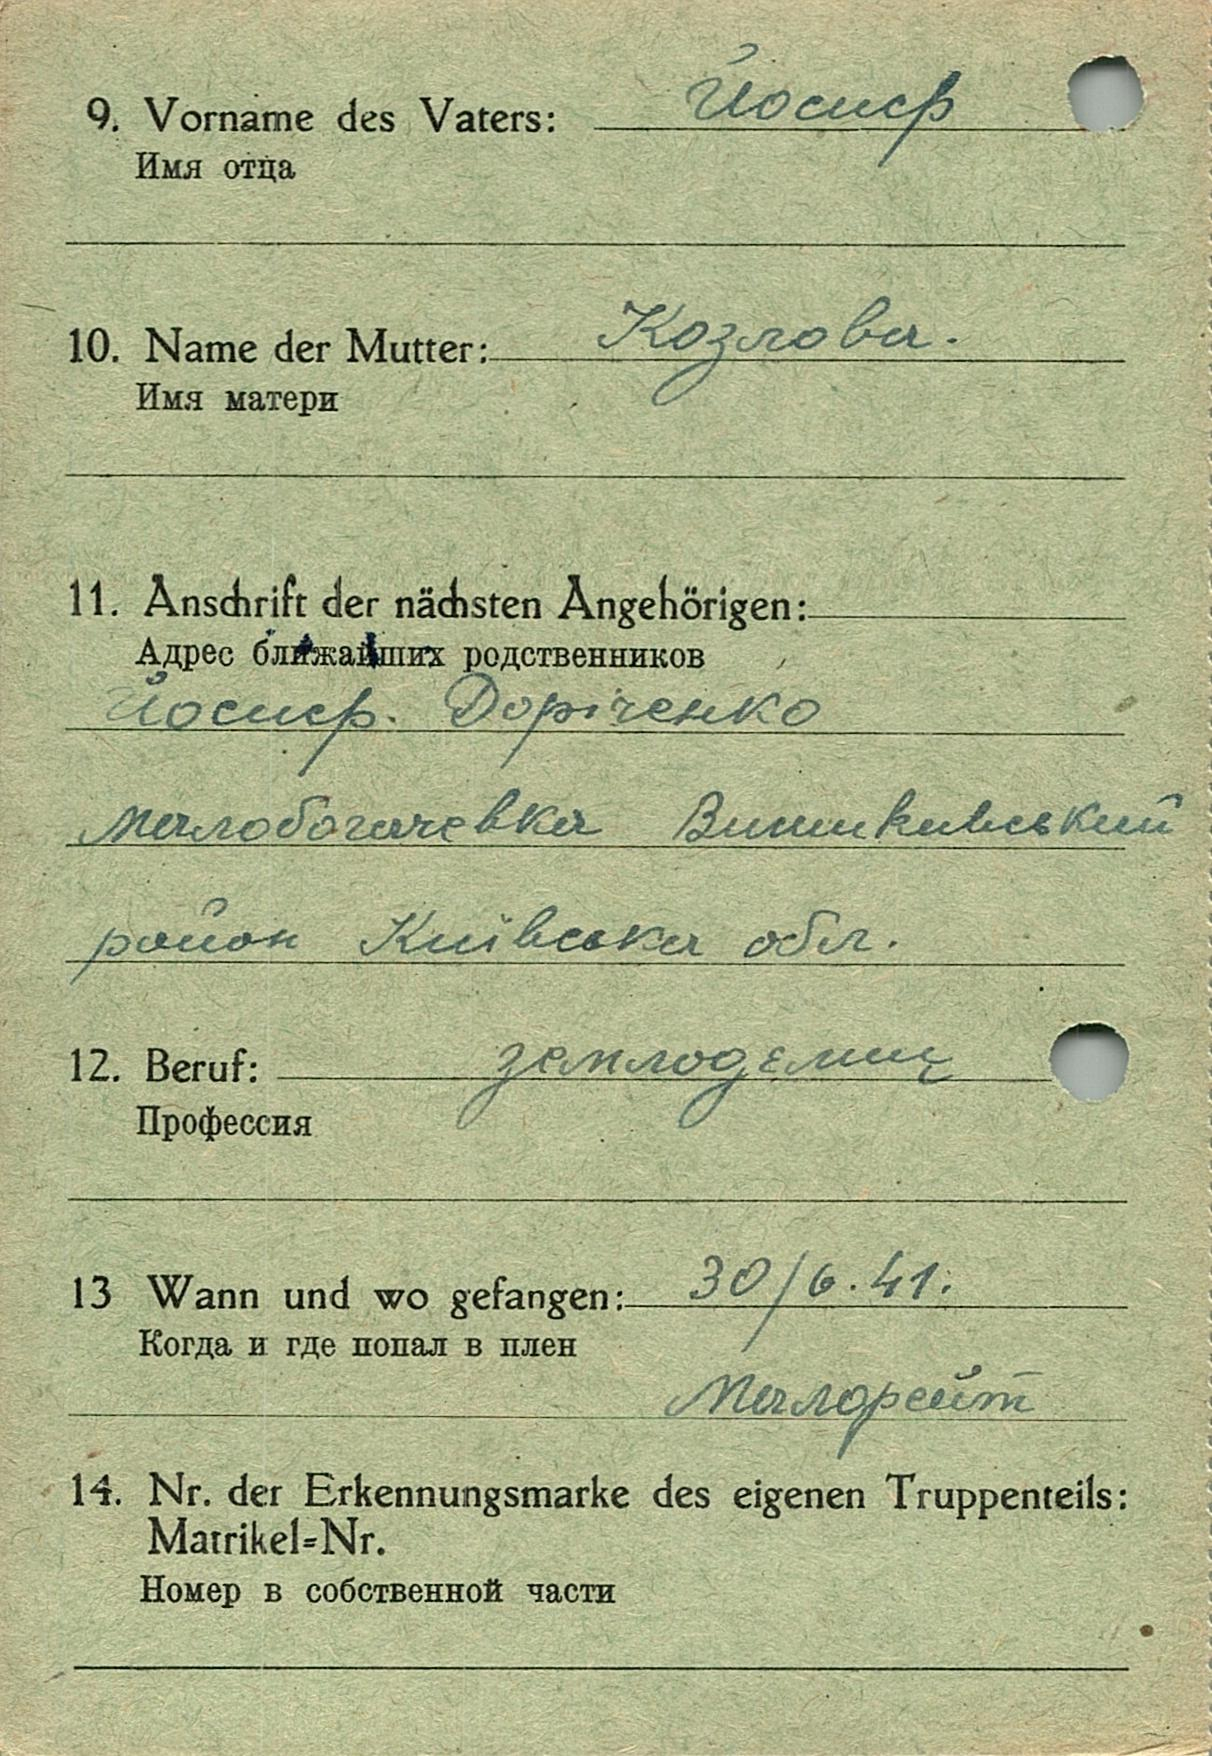 9. Vorname des Vaters: Йосиф
Имя отца
10. Name der Mutter: Козлова.
Имя матери
11. Anschrift der nächsten Angehörigen:
Адрес ближайших родственников
Йосиф. Доріченко
Малобогачевка
район Київська обл.
12. Beruf:
Профессия
13 Wann und wo gefangen: 30/6.41.
Когда и где попал в плен
14. Nr. der Erkennungsmarke des eigenen Truppenteils:
Matrikel=Nr.
Номер в собственной части